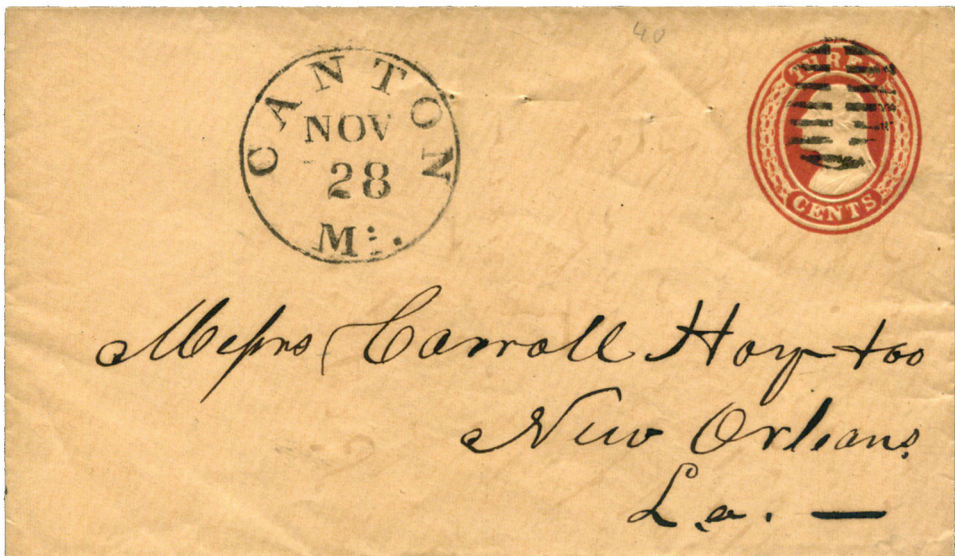 40
CANTON
NOV
28
Mi.
THREE
CENTS
Messrs Carroll Hoy & Co
New Orleans
La. —